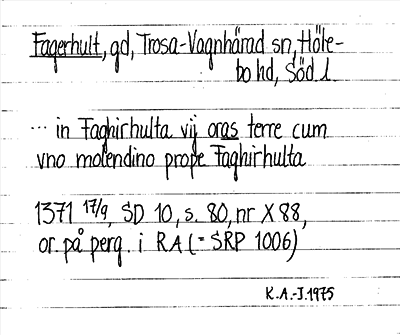 Fagerhult, gd, Trosa-Vagnhärad sn, Höle-
bo hd, Söd l.
... in Faghirhulta vij oras terre cum
vno molendino prope Faghirhulta
1371 17/9, SD 10, s. 80, nr X 88,
or. på perg. i RA (= SRP 1006)
K.A.-J. 1975